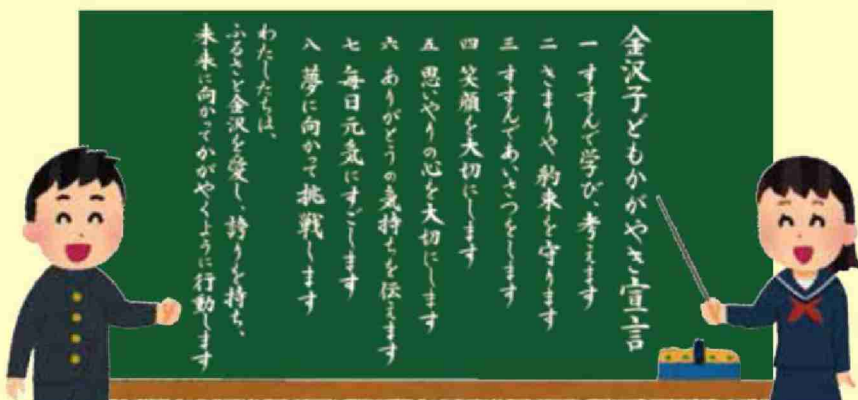 金沢子どもかがやき宣言
一 すすんで学び、考えます
二 きまりや約束を守ります
三 すすんであいさつをします
四 笑顔を大切にします
五 思いやりの心を大切にします
六 ありがとうの気持ちを伝えます
七 毎日元気にすごします
八 夢に向かって挑戦します
わたしたちは、
ふるさと金沢を愛し、誇りを持ち、
未来に向かってかがやくように行動します